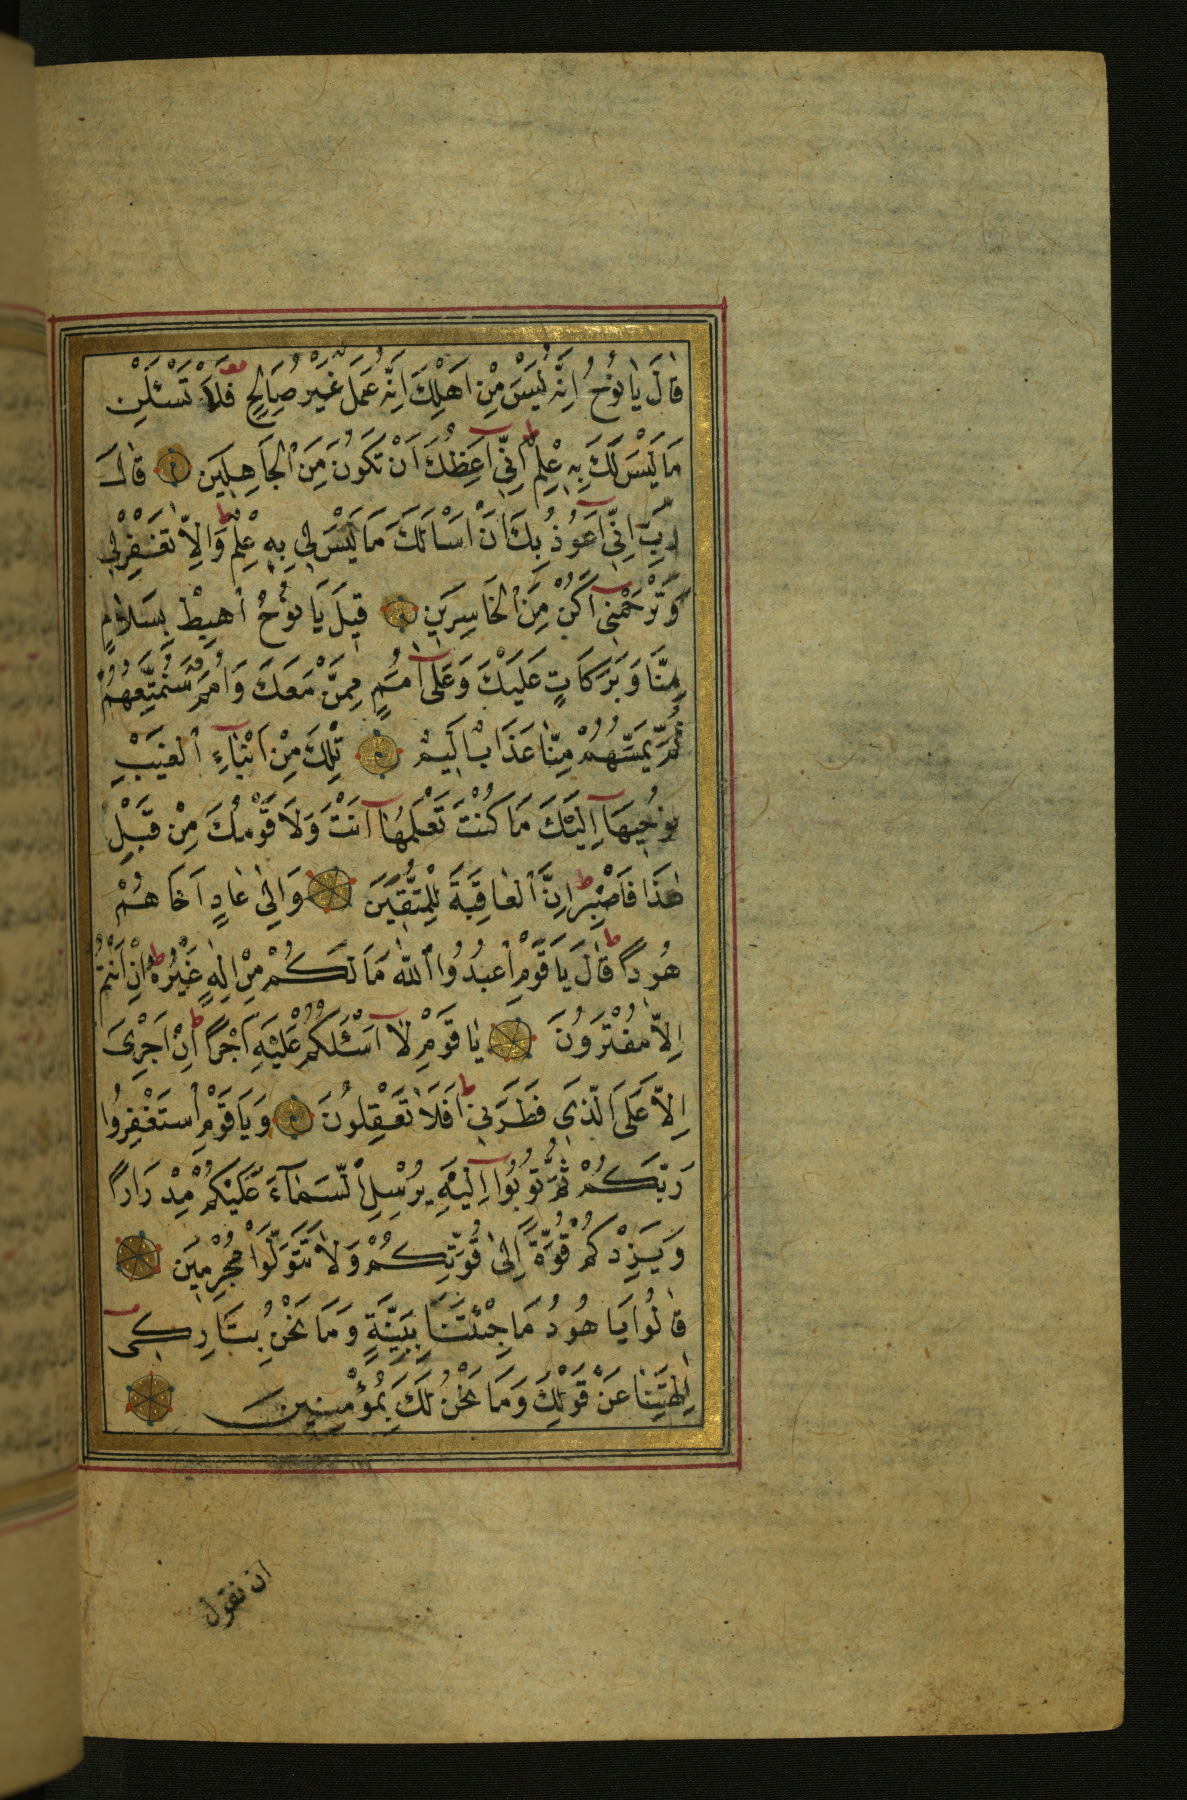 قَالَ يَا نُوحُ اِنَّهُ لَيْسَ مِنْ اَهْلِكَ اِنَّهُ عَمَلٌ غَيْرُ صَالِحٍ فَلَا تَسْئَلْنِ
مَا لَيْسَ لَكَ بِهِ عِلْمٌ ط اِنِّي اَعِظُكَ اَنْ تَكُونَ مِنَ الْجَاهِلِينَ قَالَ
رَبِّ اِنِّي اَعُوذُ بِكَ اَنْ اَسْاَلَكَ مَا لَيْسَ لِي بِهِ عِلْمٌ ط وَاِلَّا تَغْفِرْ لِي
وَتَرْحَمْنِي اَكُنْ مِنَ الْخَاسِرِينَ قِيلَ يَا نُوحُ اهْبِطْ بِسَلَامٍ
مِنَّا وَبَرَكَاتٍ عَلَيْكَ وَعَلَى اُمَمٍ مِمَّنْ مَعَكَ وَاُمَمٌ سَنُمَتِّعُهُمْ
ثُمَّ يَمَسُّهُمْ مِنَّا عَذَابٌ اَلِيمٌ تِلْكَ مِنْ اَنْبَاءِ الْغَيْبِ
نُوحِيهَا اِلَيْكَ مَا كُنْتَ تَعْلَمُهَا اَنْتَ وَلَا قَوْمُكَ مِنْ قَبْلِ
هٰذَا فَاصْبِرْ ط اِنَّ الْعَاقِبَةَ لِلْمُتَّقِينَ وَاِلٰى عَادٍ اَخَاهُمْ
هُودًا ط قَالَ يَا قَوْمِ اعْبُدُوا اللهَ مَا لَكُمْ مِنْ اِلٰهٍ غَيْرُهُ ط اِنْ اَنْتُمْ
اِلَّا مُفْتَرُونَ يَا قَوْمِ لَا اَسْئَلُكُمْ عَلَيْهِ اَجْرًا ط اِنْ اَجْرِيَ
اِلَّا عَلَى الَّذِي فَطَرَنِي ط اَفَلَا تَعْقِلُونَ وَيَا قَوْمِ اسْتَغْفِرُوا
رَبَّكُمْ ثُمَّ تُوبُوا اِلَيْهِ يُرْسِلِ السَّمَاءَ عَلَيْكُمْ مِدْرَارًا
وَيَزِدْكُمْ قُوَّةً اِلٰى قُوَّتِكُمْ وَلَا تَتَوَلَّوْا مُجْرِمِينَ
قَالُوا يَا هُودُ مَا جِئْتَنَا بِبَيِّنَةٍ وَمَا نَحْنُ بِتَارِكِي
اٰلِهَتِنَا عَنْ قَوْلِكَ وَمَا نَحْنُ لَكَ بِمُؤْمِنِينَ
ان نقول